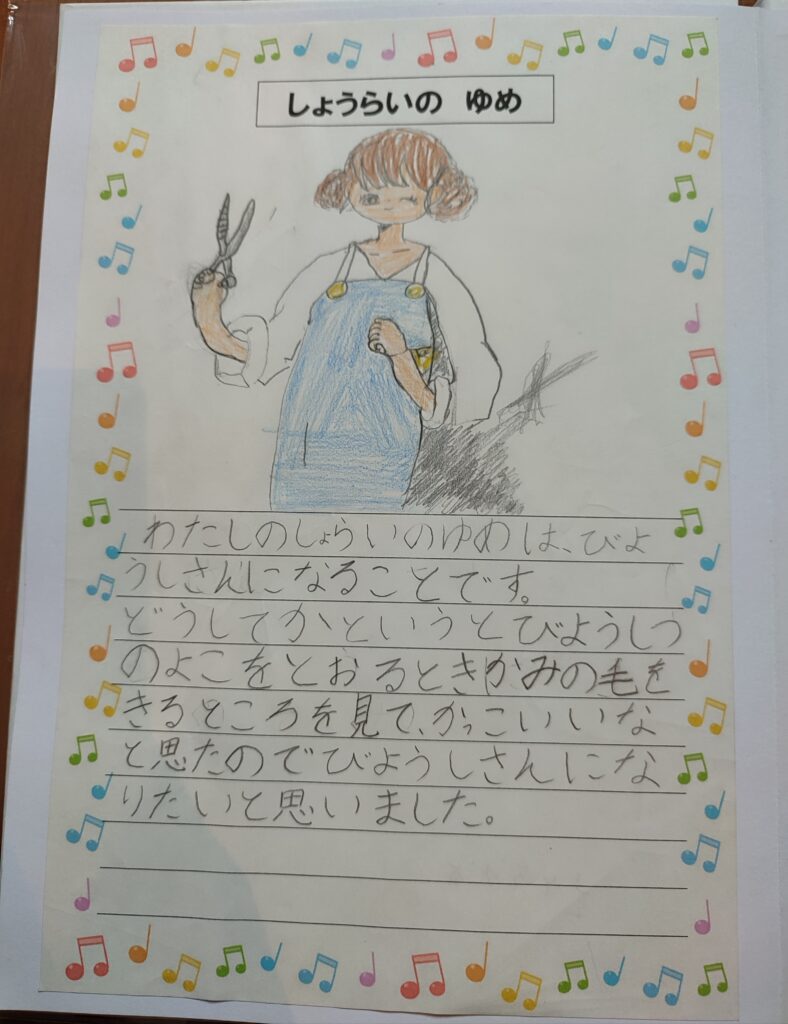 しょうらいの ゆめ
わたしのしょらいのゆめは、びよ
うしさんになることです。
どうしてかというとびようしつ
のよこをとおるときかみの毛を
きるところを見て、かっこいいな
と思たのでびようしさんにな
りたいと思いました。